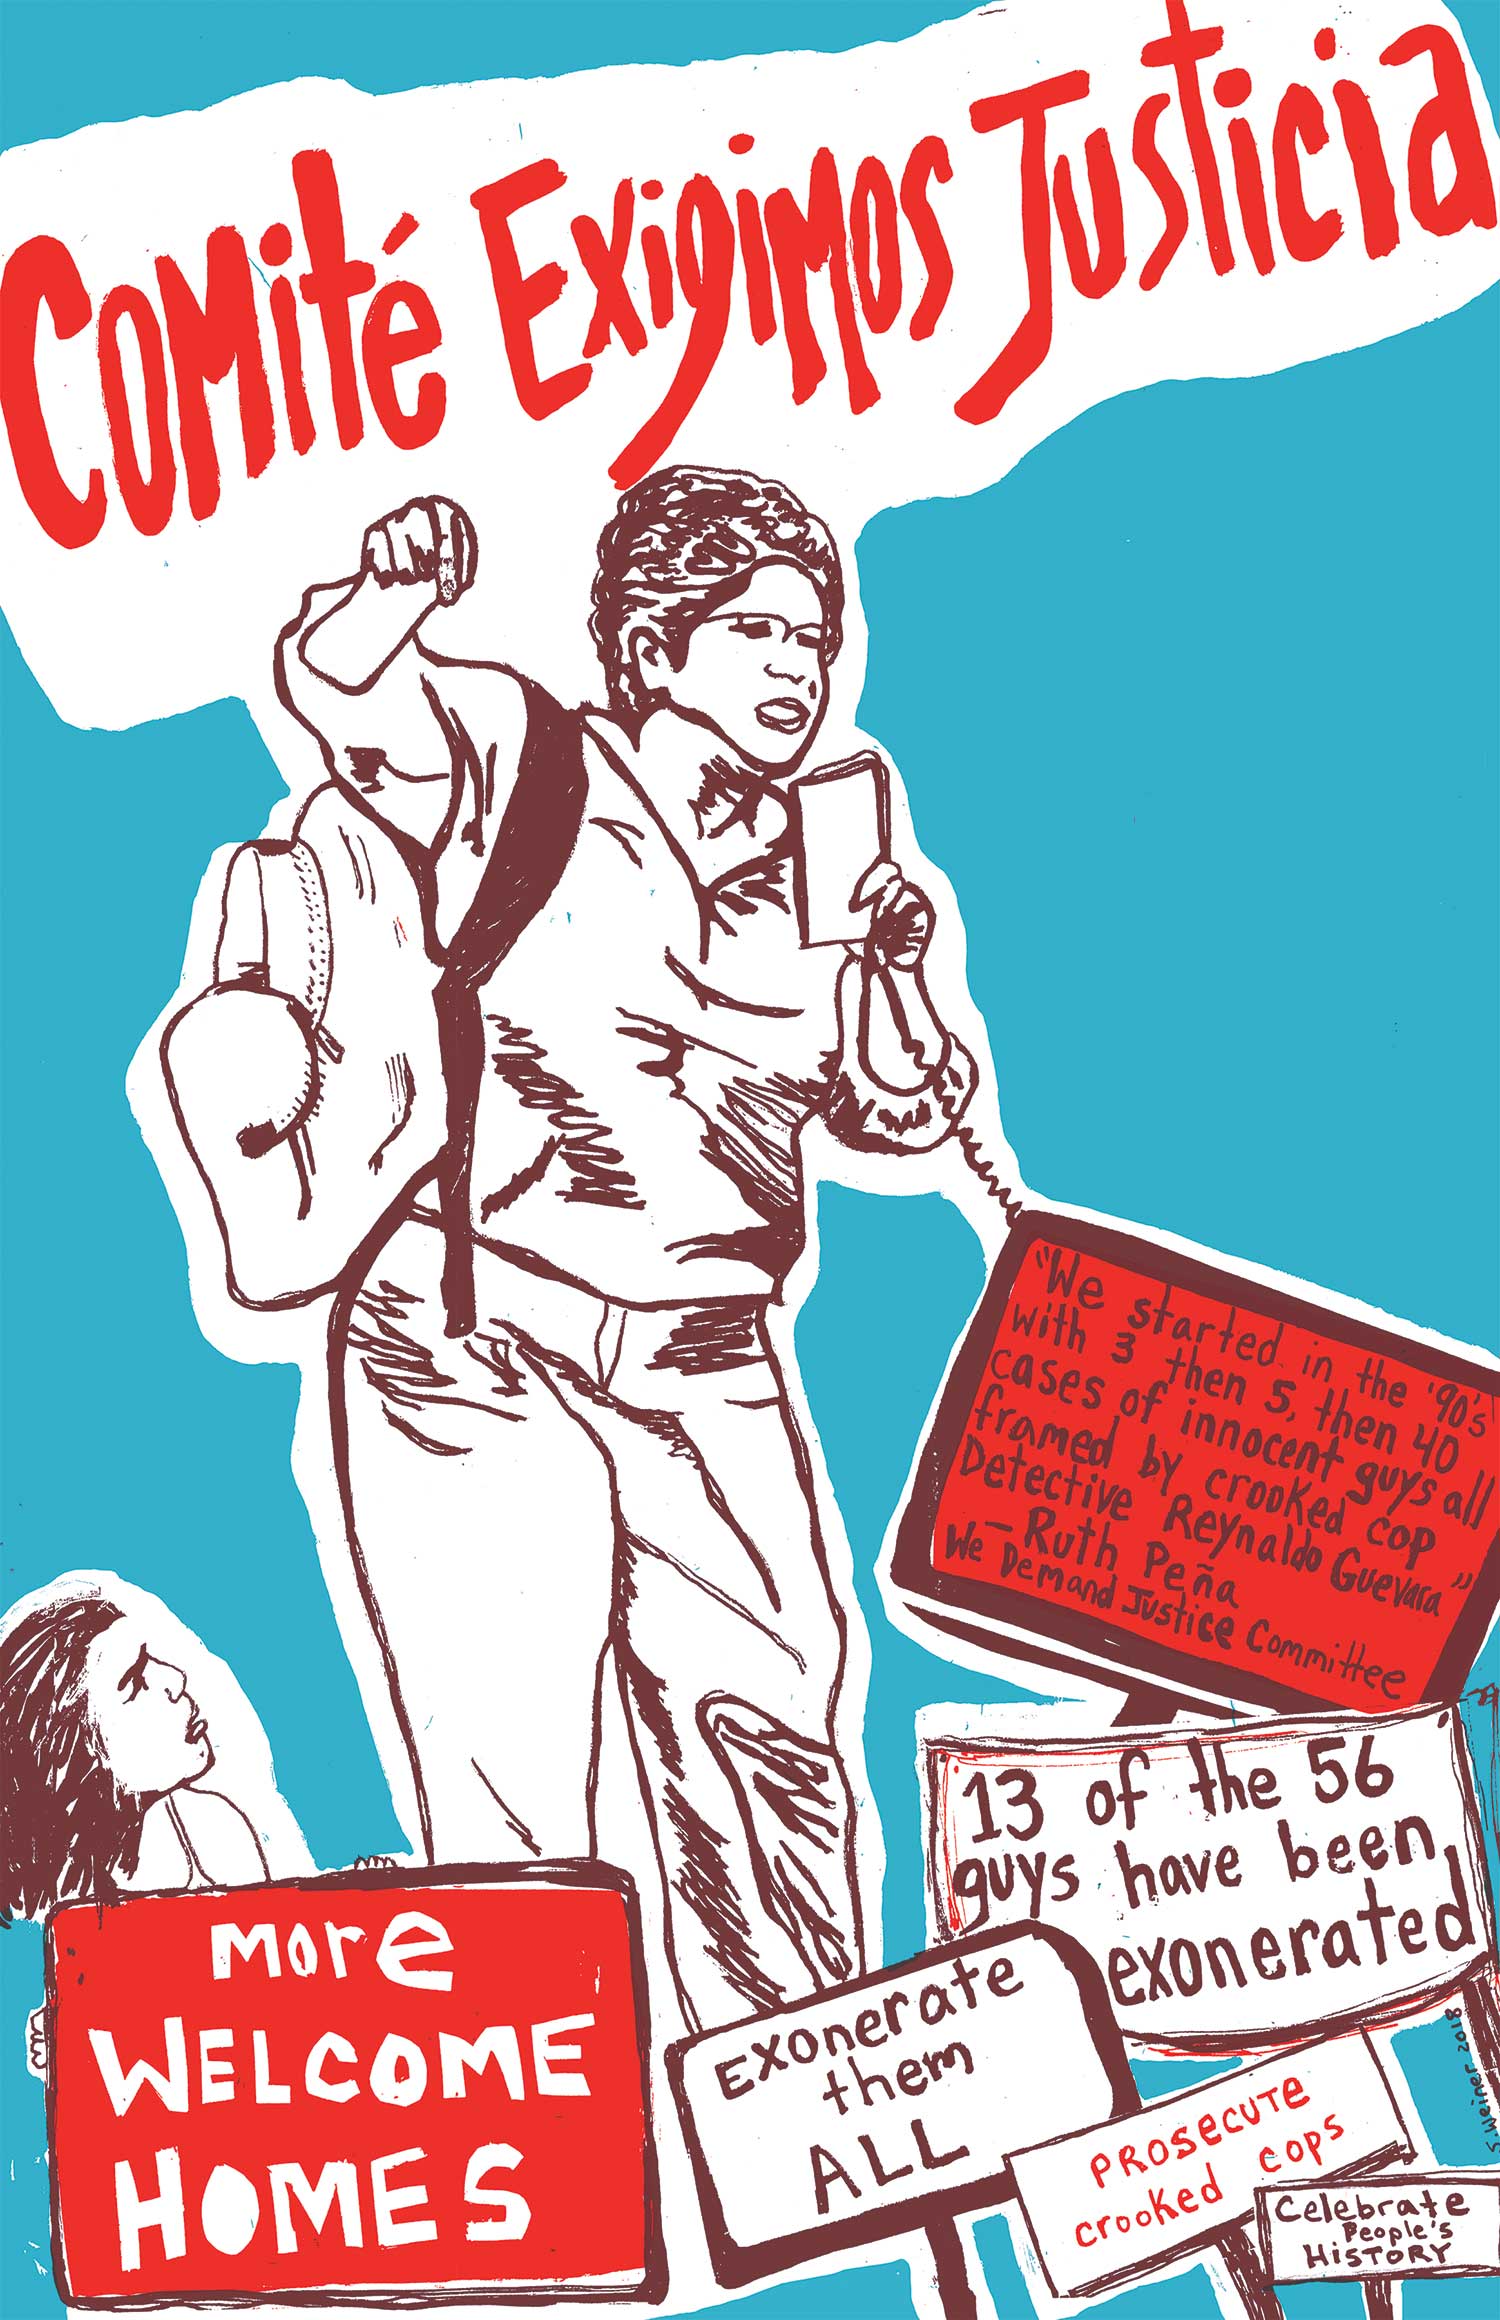 Comité Exigimos Justicia
"We started in the '90's
with 3 then 5, then 40
cases of innocent guys all
framed by crooked cop
Detective Reynaldo Guevara"
— Ruth Peña
We Demand Justice Committee
13 of the 56
guys have been
exonerated
More
WELCOME
HOMES
Exonerate
them
ALL
PROSECUTE
crooked cops
Celebrate
People's
HISTORY
S. Weiner 2018